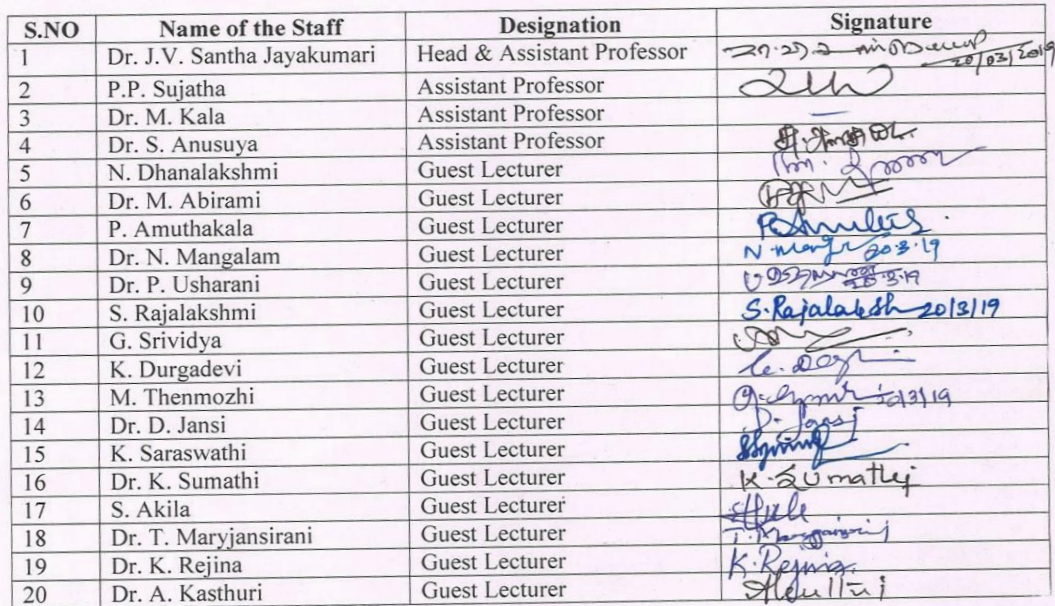 S.NO Name of the Staff Designation Signature
1 Dr. J.V. Santha Jayakumari Head & Assistant Professor 20/03/2019
2 P.P. Sujatha Assistant Professor
3 Dr. M. Kala Assistant Professor –
4 Dr. S. Anusuya Assistant Professor
5 N. Dhanalakshmi Guest Lecturer
6 Dr. M. Abirami Guest Lecturer
7 P. Amuthakala Guest Lecturer
8 Dr. N. Mangalam Guest Lecturer 20.3.19
9 Dr. P. Usharani Guest Lecturer 20.3.19
10 S. Rajalakshmi Guest Lecturer S. Rajalaksh 20/3/19
11 G. Srividya Guest Lecturer
12 K. Durgadevi Guest Lecturer
13 M. Thenmozhi Guest Lecturer 20/3/19
14 Dr. D. Jansi Guest Lecturer D. Jansi
15 K. Saraswathi Guest Lecturer
16 Dr. K. Sumathi Guest Lecturer K. Sumathi
17 S. Akila Guest Lecturer
18 Dr. T. Maryjansirani Guest Lecturer
19 Dr. K. Rejina Guest Lecturer K. Rejina
20 Dr. A. Kasthuri Guest Lecturer